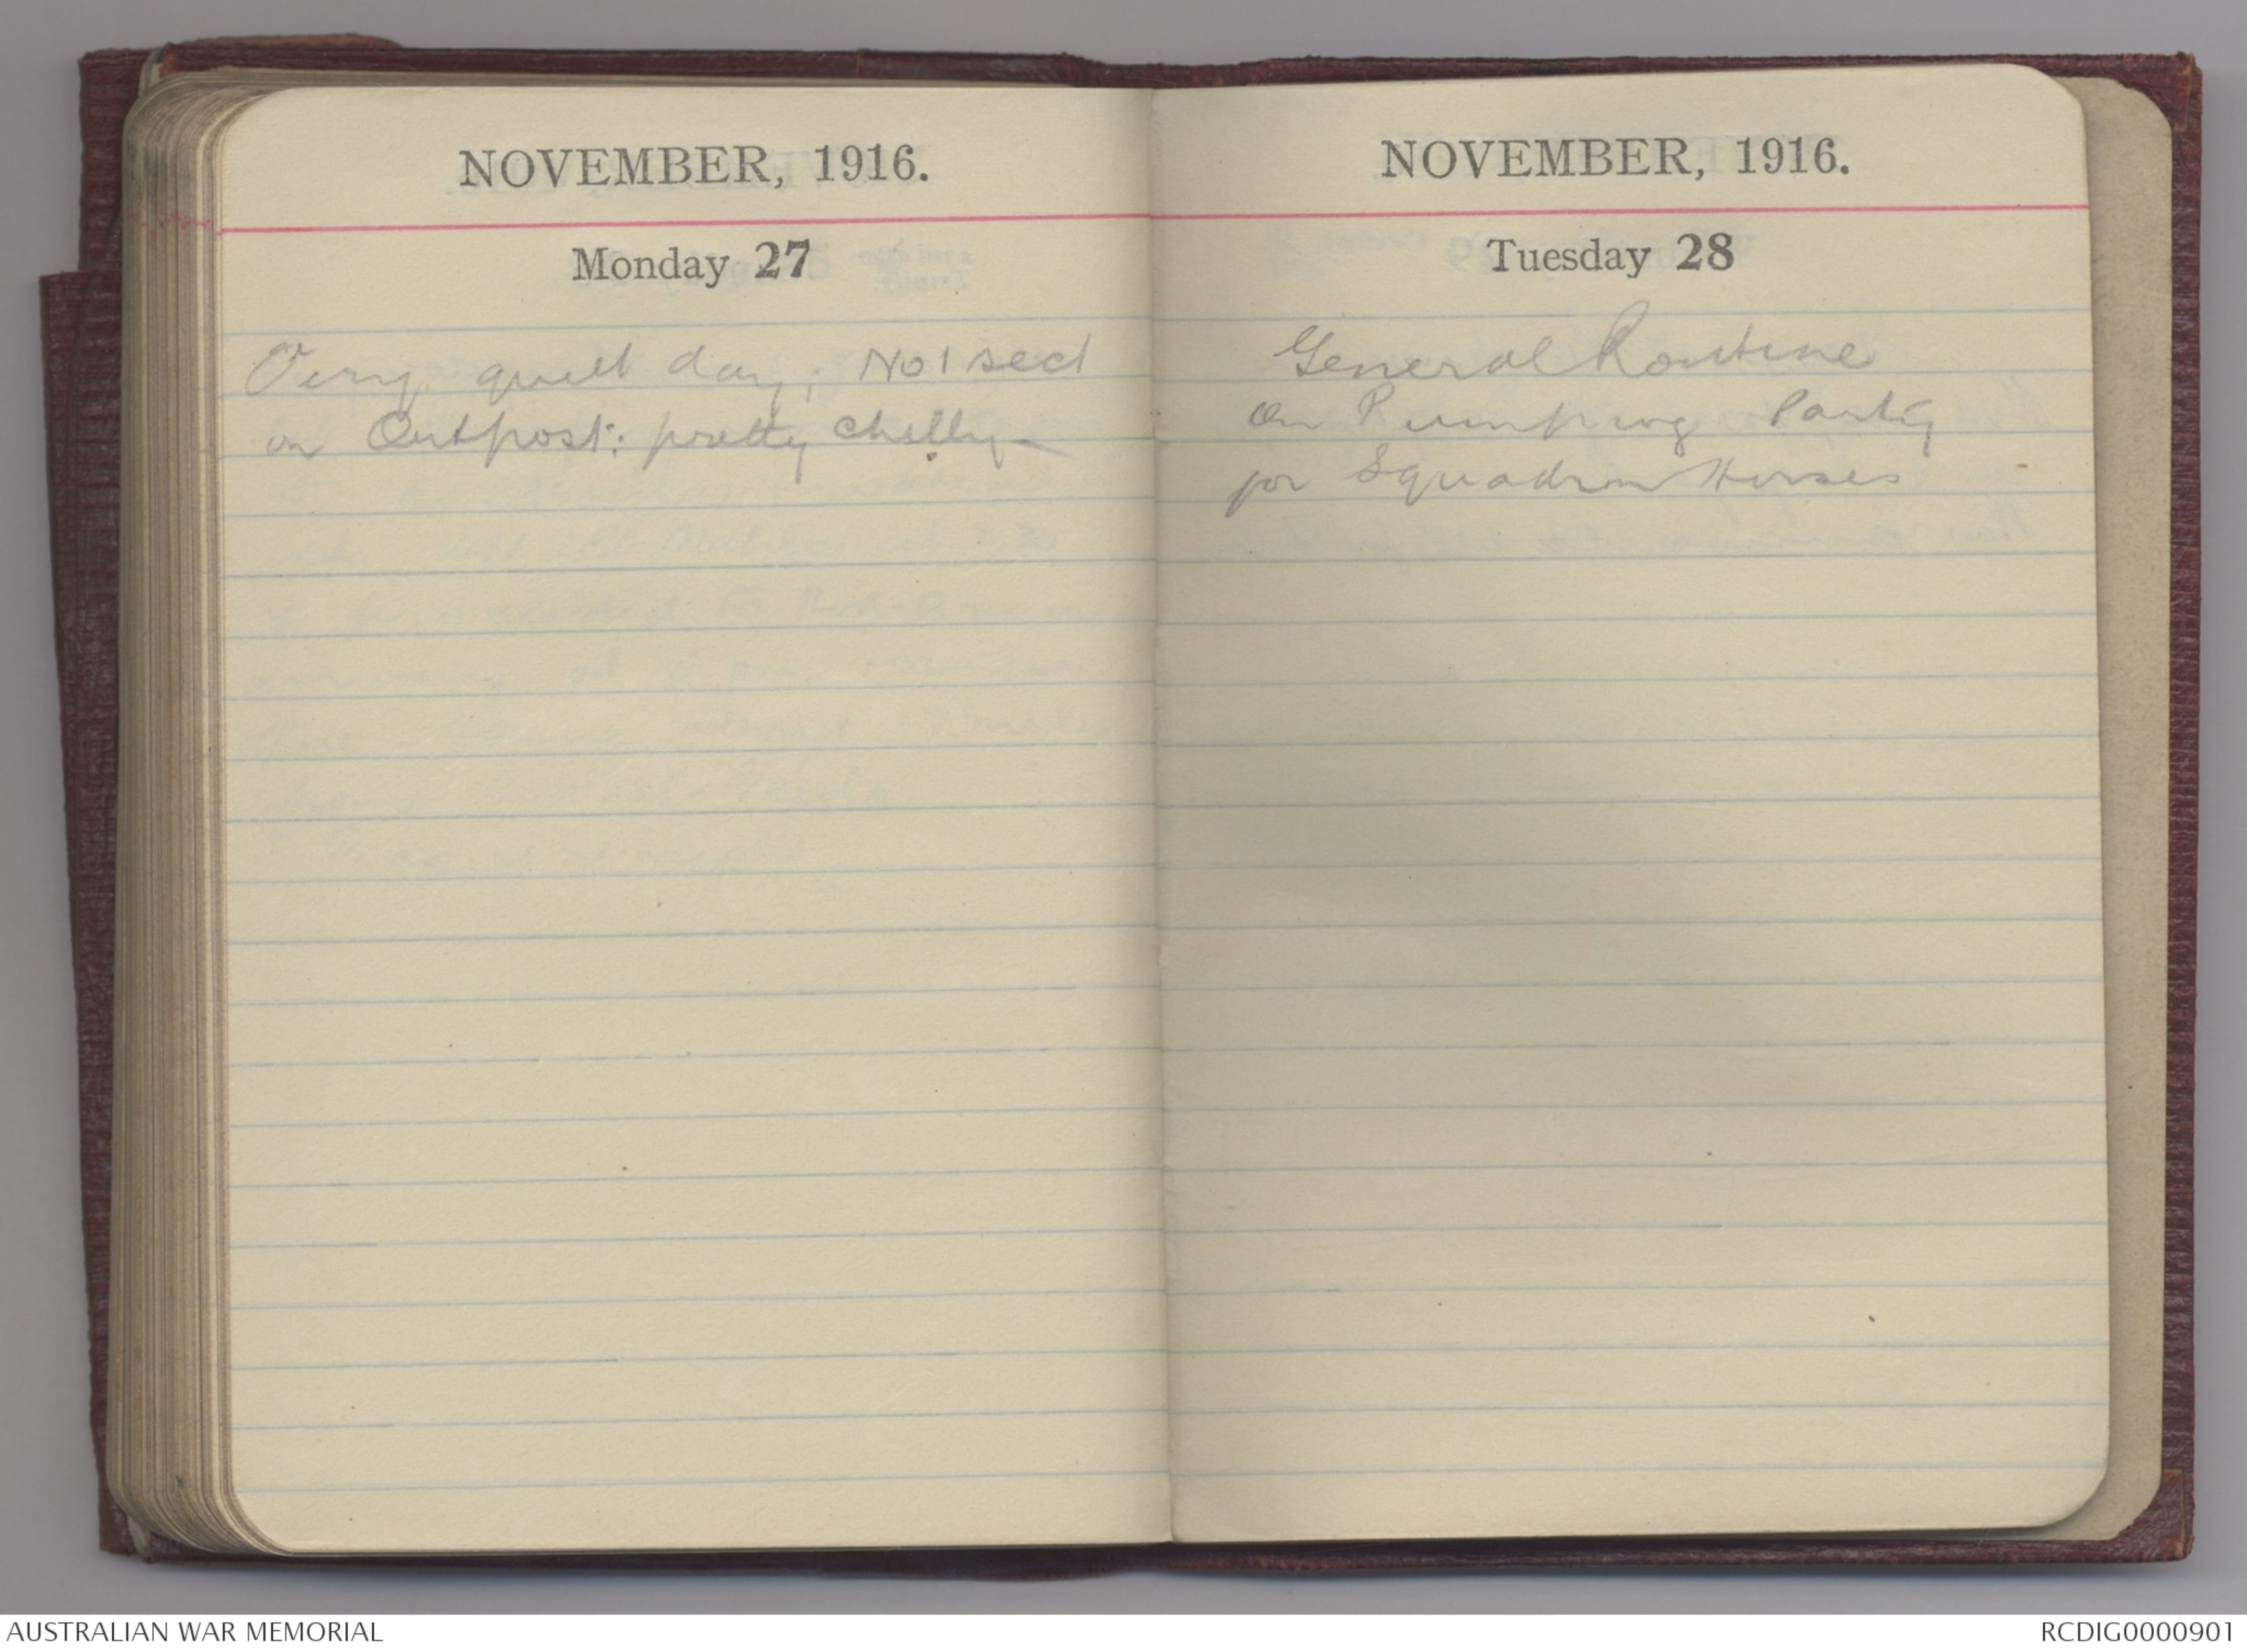 NOVEMBER, 1916.
Monday 27
Very quiet day; No 1 sect
on Outpost: pretty chilly -
NOVEMBER, 1916.
Tuesday 28
General Routine
On Pumping Party
for Squadron Horses
AUSTRALIAN WAR MEMORIAL
RCDIG0000901